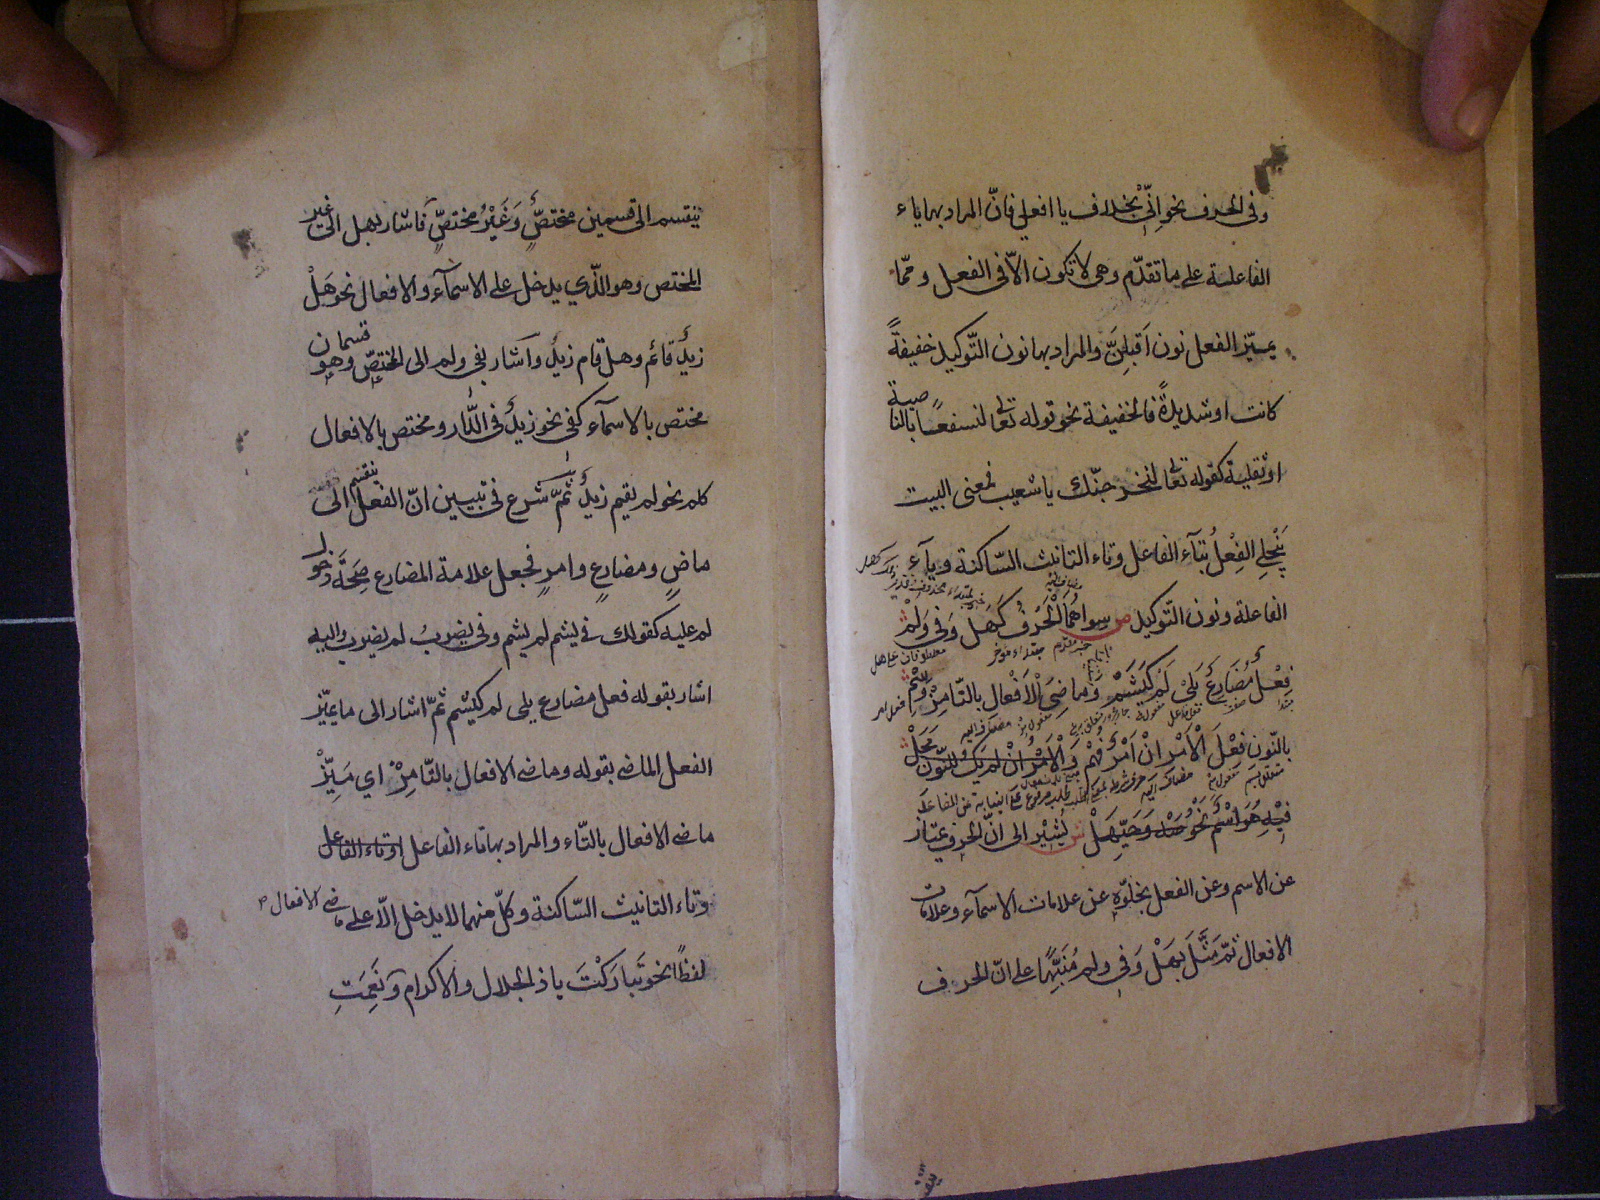 وفى الحرف نحو اِنِّىْ بخلاف يا افعلي فانّ المراد بها ياء
الفاعلية على ما تقدّم وهى لا تكون الاّ فى الفعل وممّا
يميّز الفعل نون اَقبلِنَّ والمراد بها نون التّوكيد خفيفةً
كانت او شديدةً فالخفيفة نحو قوله تعالى لنسفعًا بالنا
صية
او ثقيلة كقوله تعالى لنخرجنّك يا شعيب فمعنى البيت
يَنْجَلِى الفِعْلُ بتآء الفاعل وتاء التانيث السّاكنة وياء
الفاعلة ونون التّوكيد ص سِوَاهُمَا الْحَرْفُ كَهَلْ وَفِى وَلَمْ
خبر مقدم مبتداء مؤخر
فِعْلٌ مُضَارِعٌ يَلِىْ لَمْ كَيَشَمْ وَمَاضِىَ الْاَفْعَالِ بالتّا مِزْ وَسِمْ
بالنّون فِعْلَ الْاَمْرِ اِنْ اَمْرٌ فُهِمْ وَالْاَمْرُ اِنْ لم يَكُ للنّون مَحَلْ
فِيْهِ هُوَ اسْمٌ نَحْوُ صَهْ وَحَيَّهَلْ ش يُشِيْر الى انّ الحرف يمتاز
عن الاسم وعن الفعل بخلوّه عن علامات الاسمآء وعلامات
الافعال ثمّ مَثَّلَ بهَلْ وَفِى ولم مُنَبِّهًا على انّ الحرف
ينقسم
ينقسم الى قسمين مختصٌّ وَغَيْرُ مختصٍّ فاشار بهل الى غير
المختص وهو الّذي يدخل على الاسمآء والافعال نحو هَلْ
زيدٌ قائم وهل قام زيدٌ وآشار بفى ولم الى المختصّ وهو
قسمان
مختص بالاسمآء كفى نحو زيدٌ فى الدّار ومختص بالافعال
كلم نحو لم يقم زيدٌ ثمّ شرع فى تبيين انّ الفعل ينقسم الى
ماضٍ ومضارعٍ وامرٍ فجعل علامة المضارع صِحَّةَ دخول
لم عليه كقولك فى يشم لم يشم وفى يضربُ لم يضرب واليه
اشار بقوله فعل مضارع يلى لم كيشم ثمّ اشار الى ما يميّز
الفعل الماضى بقوله وماضى الافعال بالتّا مِزْ اي مَيِّزْ
ماضى الافعال بالتّاء والمراد بها تاء الفاعل او تاء الفاعل
وتاء التانيث السّاكنة وكلّ منهما لا يدخل الاّ على ماضى الافعال
لفظًا نحو تَبَارَكْتَ يا ذ الجلال والاكرام ونَعِمَتِ